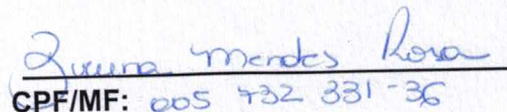 Mendes Rosa
CPF/MF: 005 732 331-36